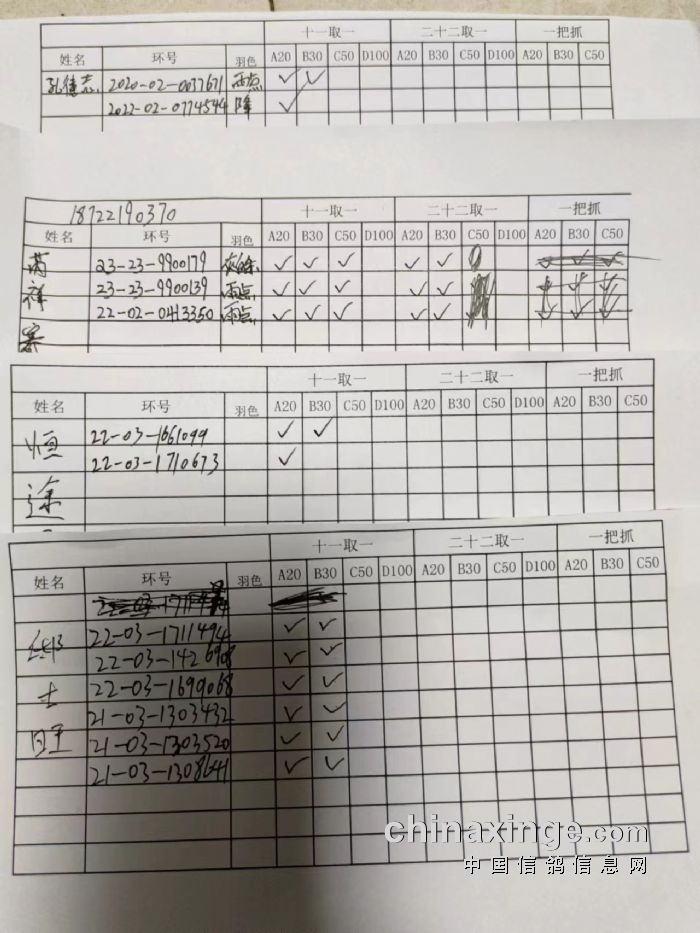 十一取一 二十二取一 一把抓
姓名 环号 羽色 A20 B30 C50 D100 A20 B30 C50 D100 A20 B30 C50
2020-02-0077671 雨点 ✓ ✓
2022-02-0774544 ✓
18722190370 十一取一 二十二取一 一把抓
姓名 环号 羽色 A20 B30 C50 D100 A20 B30 C50 D100 A20 B30 C50
23-23-9900179 ✓ ✓ ✓ ✓ ✓
祥 23-23-9900139 雨点 ✓ ✓ ✓ ✓ ✓
22-02-0413350 雨点 ✓ ✓ ✓ ✓ ✓
十一取一 二十二取一 一把抓
姓名 环号 羽色 A20 B30 C50 D100 A20 B30 C50 D100 A20 B30 C50
恒 22-03-1661099 ✓ ✓
22-03-1710673 ✓
途
十一取一 二十二取一 一把抓
姓名 环号 羽色 A20 B30 C50 D100 A20 B30 C50 D100 A20 B30 C50
22-03-1711494 ✓ ✓
22-03-1426908 ✓ ✓
22-03-1699068 ✓ ✓
21-03-1303432 ✓ ✓
21-03-1303520 ✓ ✓
21-03-1308641 ✓ ✓
chinaxinge.com
中国信鸽信息网